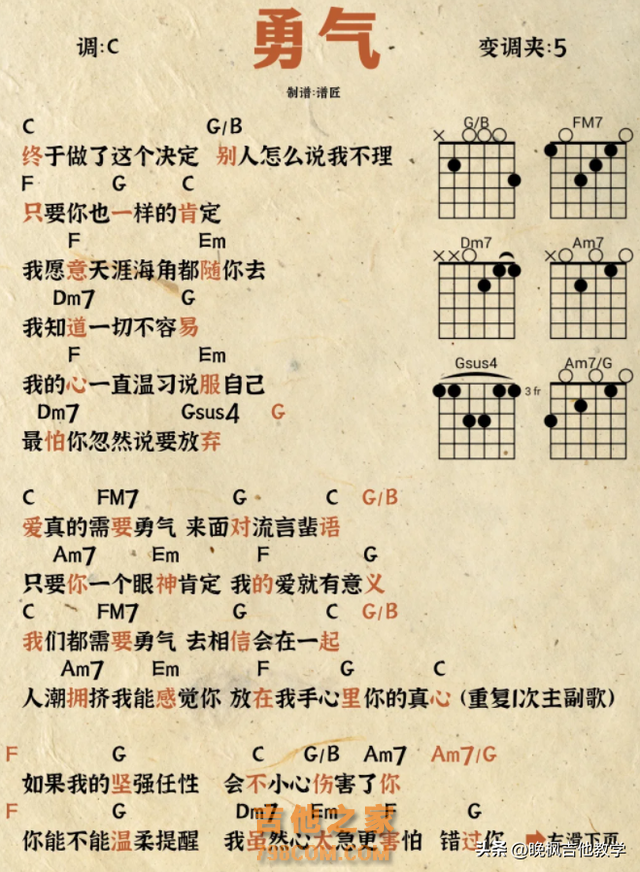 勇气
调:C
变调夹:5
制谱:谱匠
C G/B
终于做了这个决定 别人怎么说我不理
F G C
只要你也一样的肯定
F Em
我愿意天涯海角都随你去
Dm7 G
我知道一切不容易
F Em
我的心一直温习说服自己
Dm7 Gsus4 G
最怕你忽然说要放弃
G/B FM7
Dm7 Am7
Gsus4 3 fr Am7/G
C FM7 G C G/B
爱真的需要勇气 来面对流言蜚语
Am7 Em F G
只要你一个眼神肯定 我的爱就有意义
C FM7 G C G/B
我们都需要勇气 去相信会在一起
Am7 Em F G C
人潮拥挤我能感觉你 放在我手心里你的真心 (重复1次主副歌)
F G C G/B Am7 Am7/G
如果我的坚强任性 会不小心伤害了你
F G Dm7 Em F G
你能不能温柔提醒 我虽然心太急更害怕 错过你 右滑下页
吉他之家
798COM.COM
头条 @晚枫吉他教学